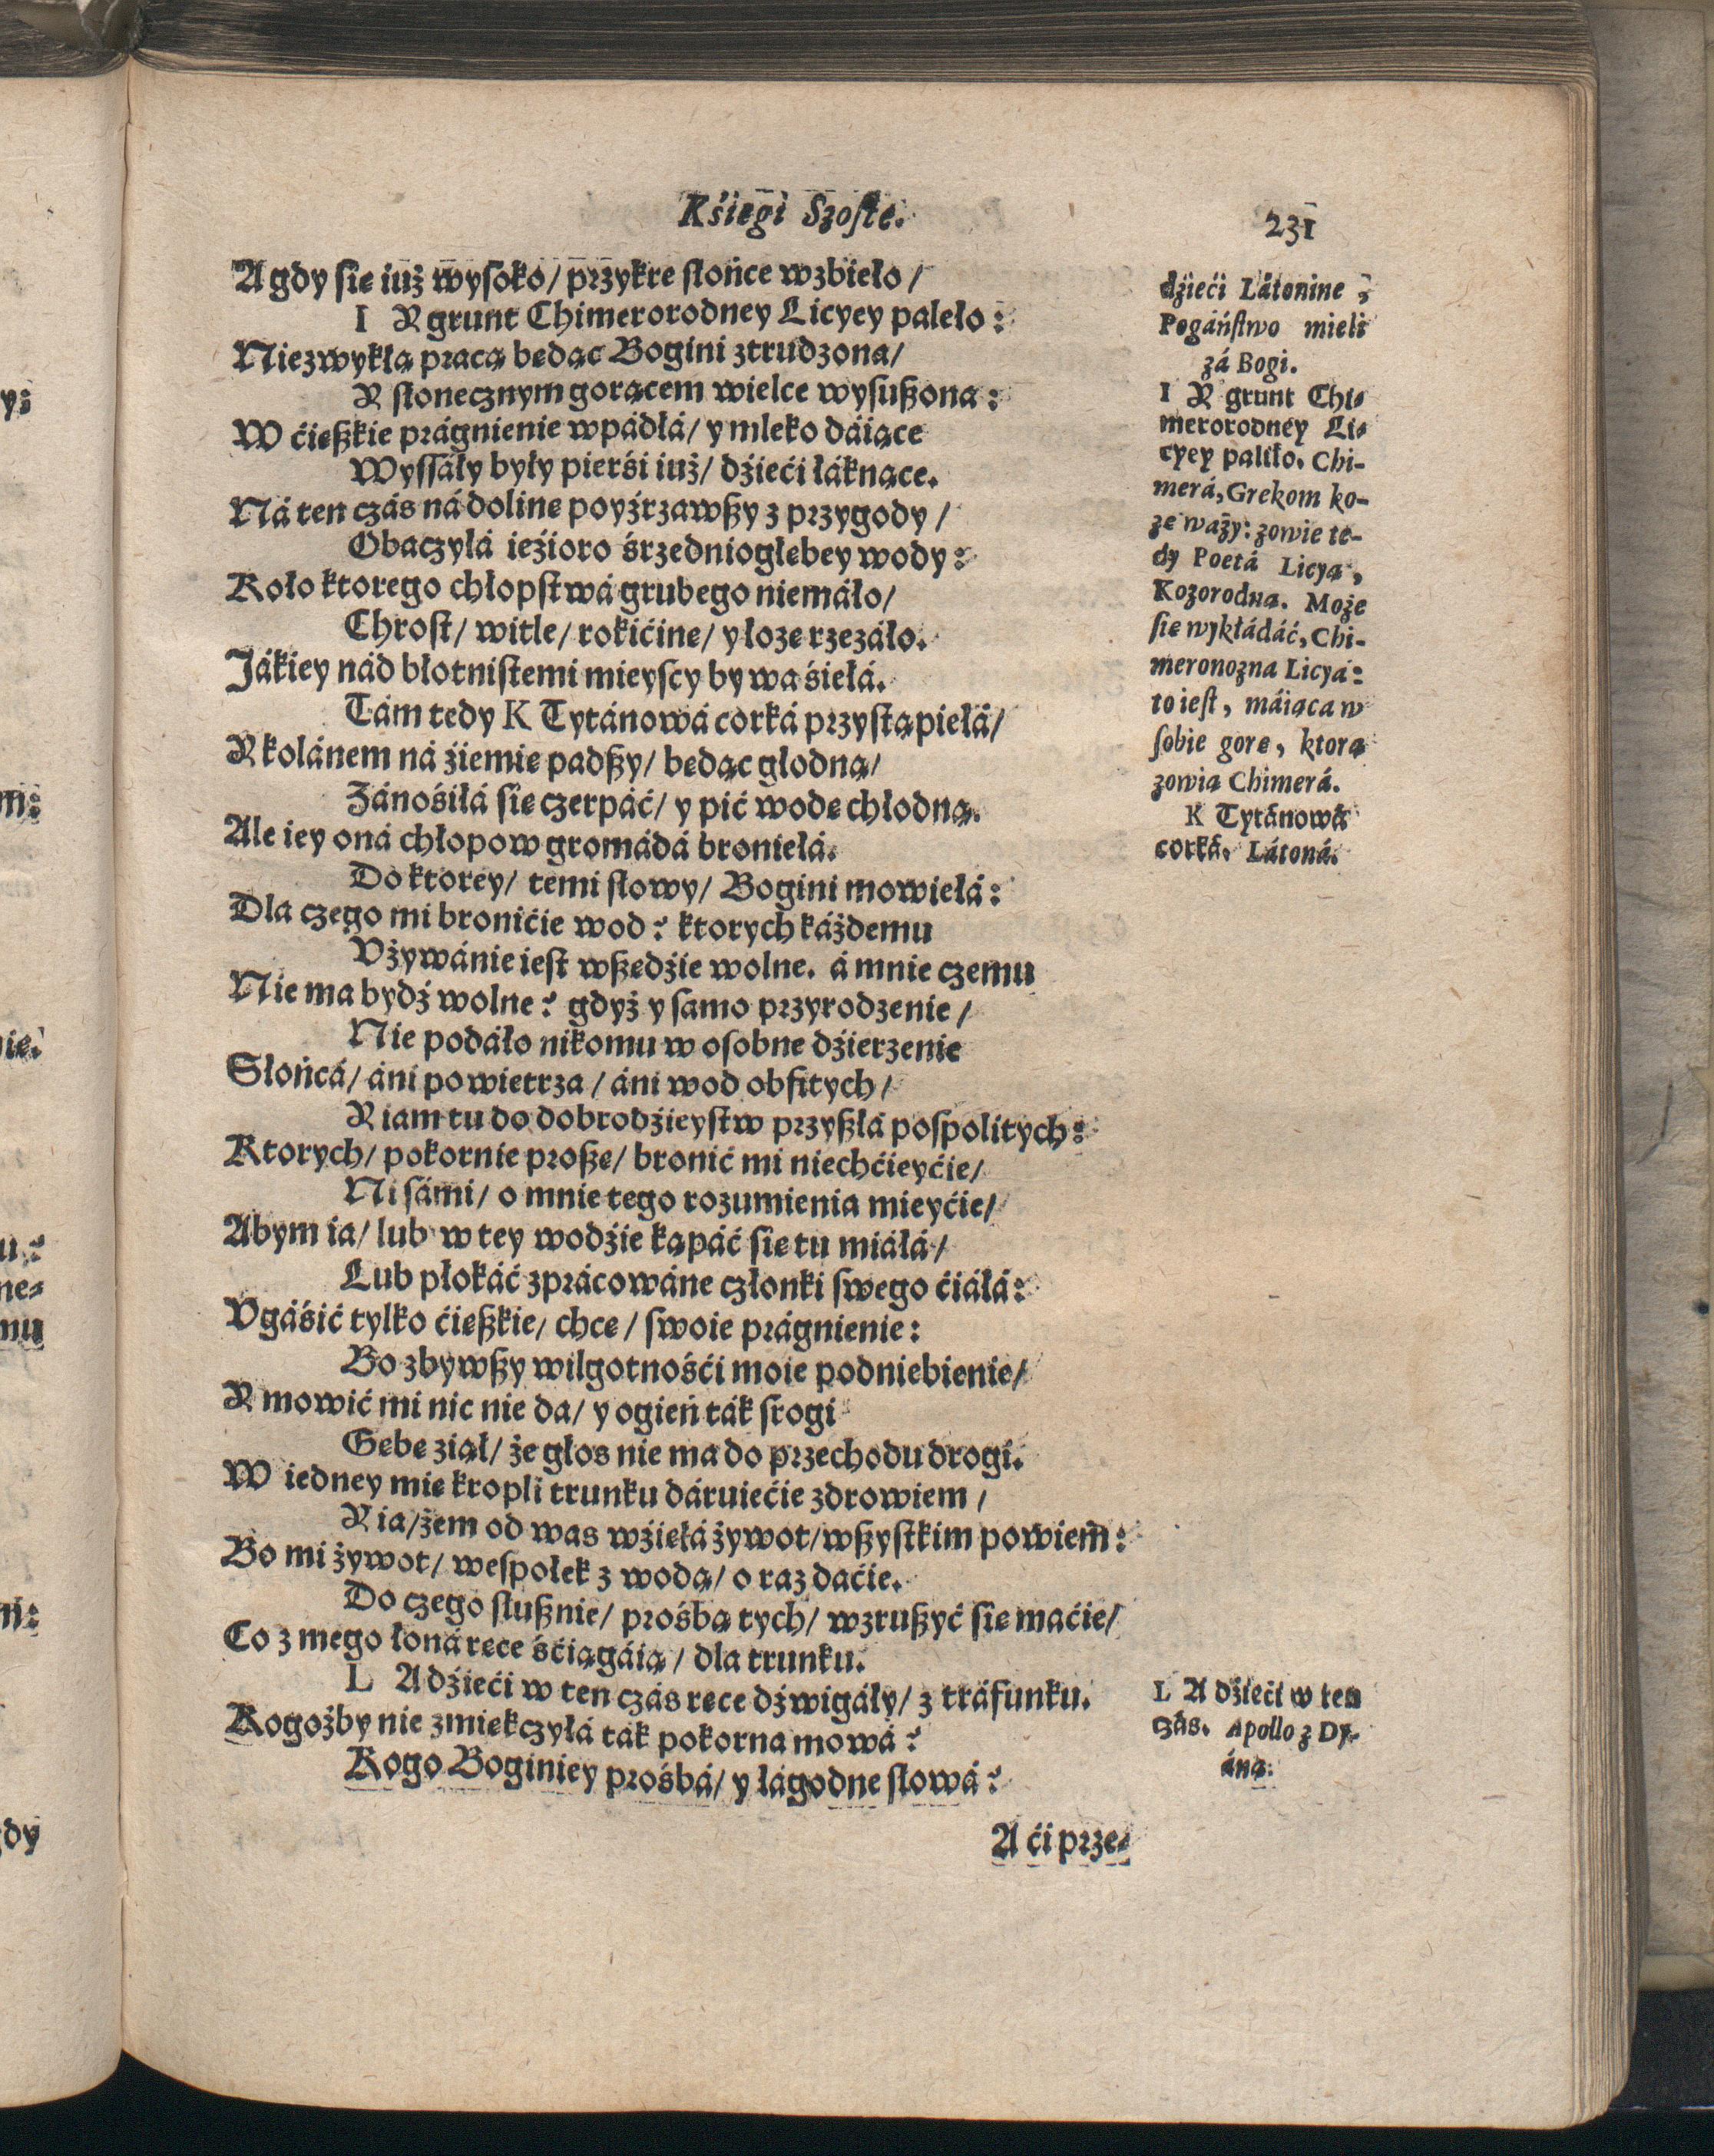 Kśięgi Szoſte.
231
A gdy ſie iuż wyſoko/ przykre ſłońce wzbieło/
I Y grunt Chimerorodney Licyey paleło:
Niezwykłą pracą bedąc Bogini ztrudzona/
Y ſłonecznym gorącem wielce wyſußona:
W ćießkie prágnienie wpádłá/ y mleko dáiące
Wyſſáły były pierśi iuż/ dźieći łáknące.
Ná ten czás ná doline poyźrzawßy z przygody/
Obaczyłá ieźioro śrzedniogłebey wody:
Koło ktorego chłopſtwá grubego niemáło/
Chroſt/ witle/ rokićine/ y łoze rzezáło.
Jákiey nád błotniſtemi mieyſcy bywa śiełá.
Tám tedy K Tytánowá corká przyſtąpiełá/
Y kolánem ná źiemie padßy/ bedąc głodną/
Zánośiłá ſie czerpáć/ y pić wode chłodną.
Ale iey oná chłopow gromádá broniełá.
Do ktorey/ temi ſłowy/ Bogini mowiełá:
Dla czego mi bronićie wod? ktorych káżdemu
Vżywánie ieſt wßedźie wolne. á mnie czemu
Nie ma bydź wolne? gdyż y ſamo przyrodzenie/
Nie podáło nikomu w oſobne dźierzenie
Słońcá/ áni powietrza/ áni wod obfitych/
Y iam tu do dobrodźieyſtw przyßłá poſpolitych:
Ktorych/ pokornie proße/ bronić mi niechćieyćie/
Ni ſámi/ o mnie tego rozumienia mieyćie/
Abym ia/ lub w tey wodźie kąpáć ſie tu miáłá/
Lub płokáć zprácowáne członki ſwego ćiáłá:
Vgáśić tylko ćießkie/ chce/ ſwoie prágnienie:
Bo zbywßy wilgotnośći moie podniebienie/
Y mowić mi nic nie da/ y ogień ták ſrogi
Gebe ziął/ że głos nie ma do przechodu drogi.
W iedney mie kropli trunku dáruiećie zdrowiem/
Y ia/żem od was wźiełá żywot/wßyſtkim powiem:
Bo mi żywot/ weſpołek z wodą/ o raz daćie.
Do czego ſłußnie/ prośbą tych/ wzrußyć ſie maćie/
Co z mego łoná rece śćiągáią/ dla trunku.
L A dźieći w ten czás rece dźwigáły/ z tráfunku.
Kogożby nie zmiekczyłá ták pokorna mowá?
Kogo Boginiey prośbá/ y łágodne ſłowá?
A ći prze-
dźieći Látonine,
Pogáńſtwo mieli
zá Bogi.
I Y grunt Chi-
merorodney Li-
cyey paliło. Chi-
merá, Grekom ko-
ze waży: zowie te-
dy Poetá Licyą,
Kozorodną. Może
ſie wykłádáć, Chi-
meronozna Licya:
to ieſt, máiąca w
ſobie gore, ktorą
zowią Chimerá.
K Tytánowá
corká. Látoná.
L A dźieći w ten
czás. Apollo z Dy-
áną.